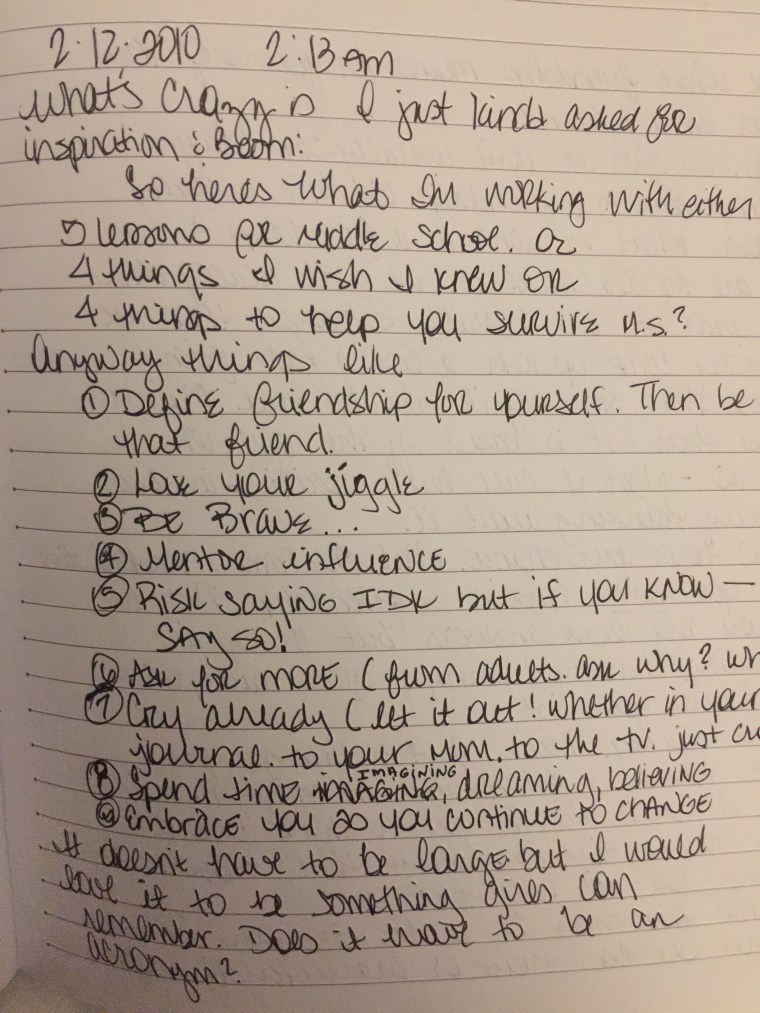 2.12.2010 2:13 AM
What's crazy is I just kinda asked for
inspiration & Boom:
So heres what Im working with either
5 lessons for middle school. Or
4 things I wish I knew or
4 things to help you survive M.S.?
Anyway things like
① Define friendship for yourself. Then be
that friend.
② Love your jiggle
③ Be Brave...
④ Mentor influence
⑤ Risk saying IDK but if you know —
SAY SO!
⑥ Ask for more (from adults. ask why?
⑦ Cry already (let it out! whether in your
journal. to your mom. to the tv. just
⑧ Spend time IMAGINING, dreaming, believing
⑨ Embrace you as you continue to change
It doesn't have to be large but I would
love it to be something girls can
remember. Does it have to be an
acronym?